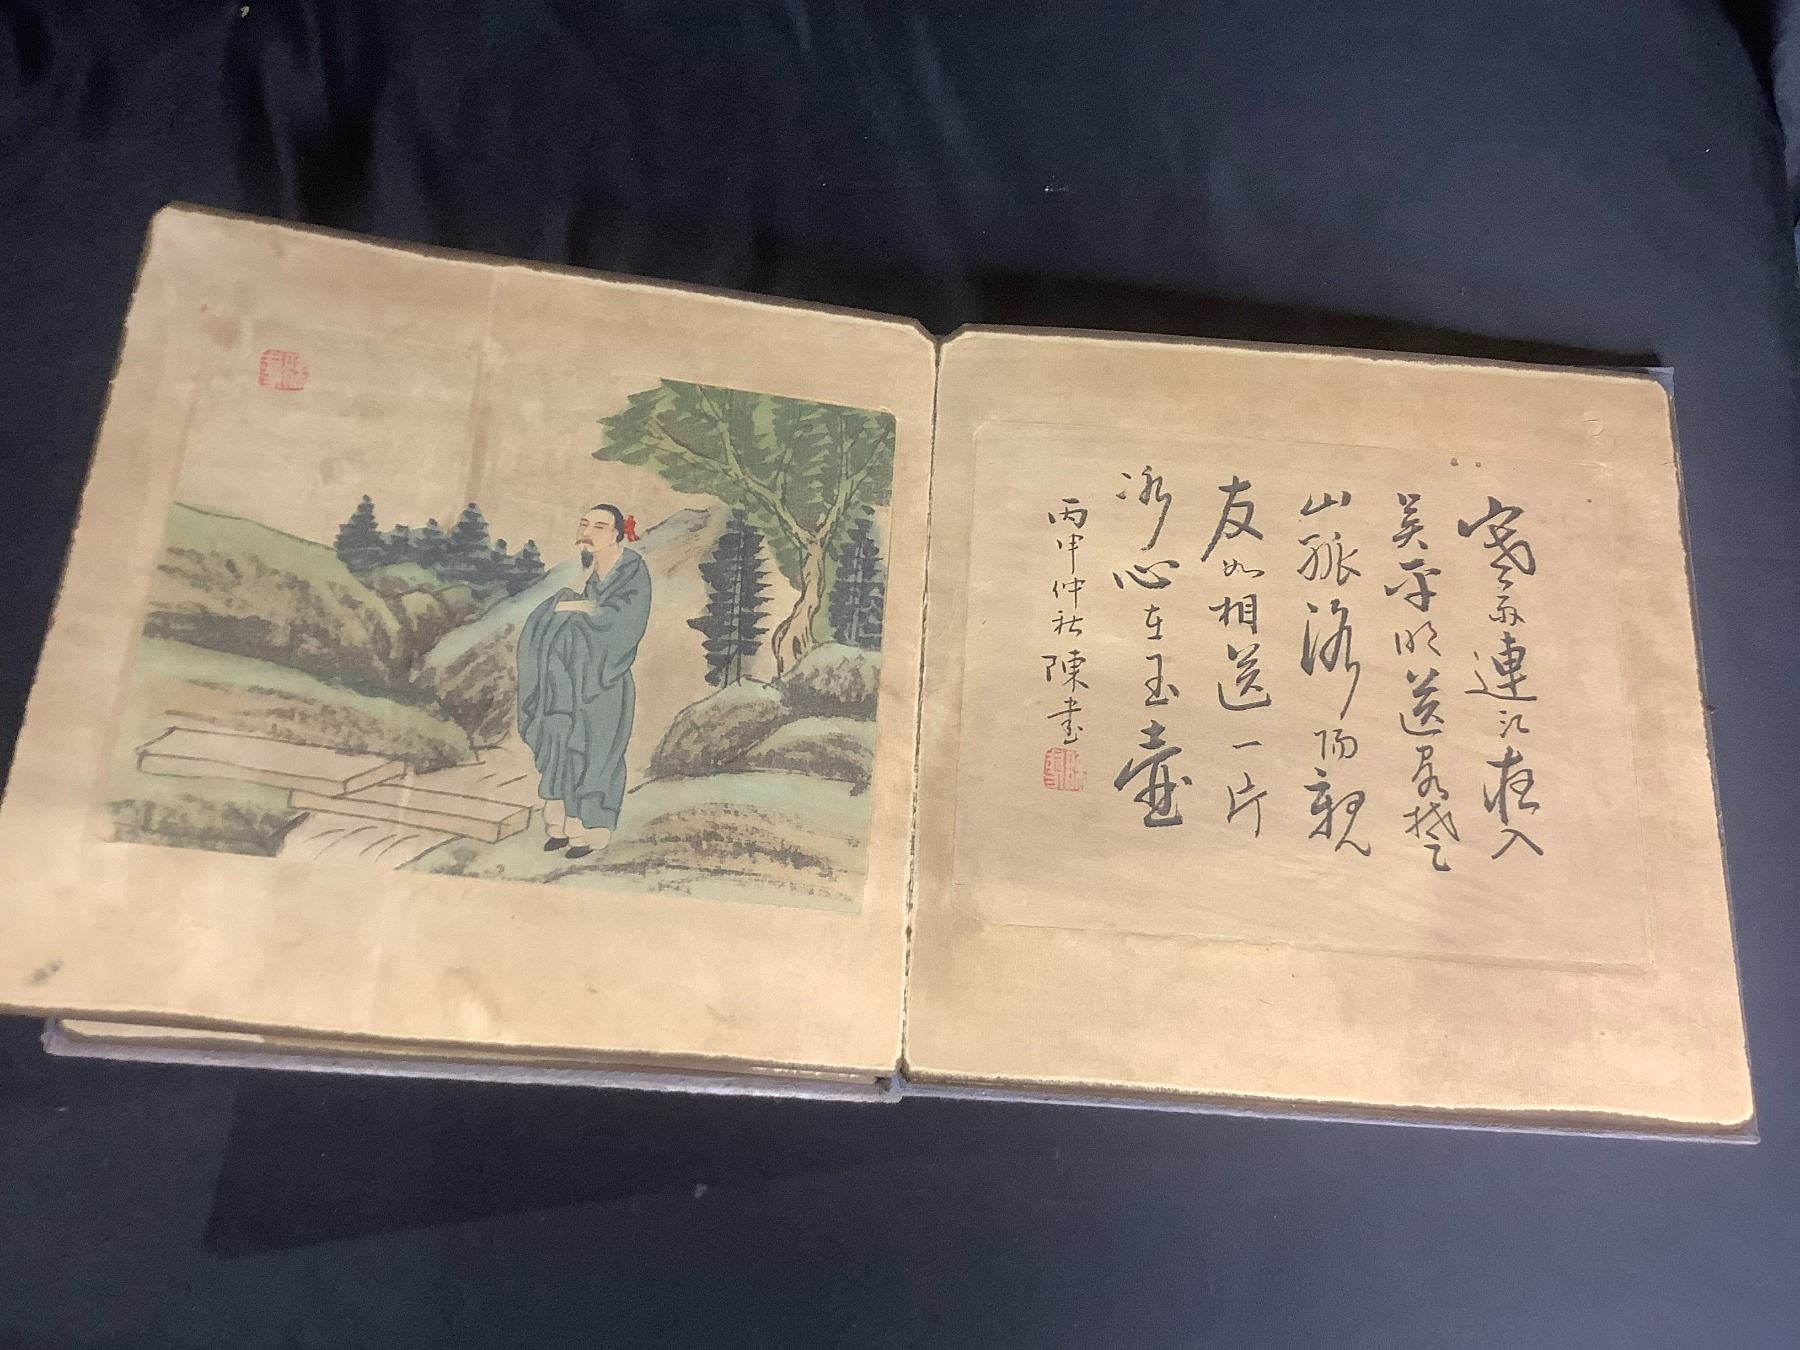 寒雨連江夜入
吴平明送客楚
山孤洛陽親
友如相送一片
冰心在玉壺
丙申仲秋 陳書